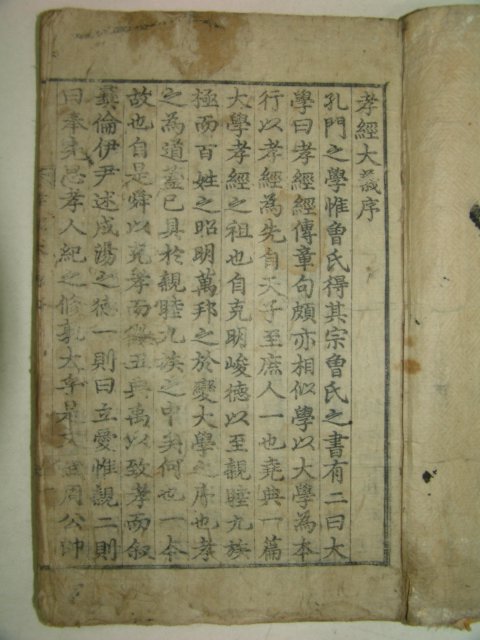 孝經大義序
孔門之學惟魯氏得其宗魯氏之書有二曰大
學曰孝經經傳章句頗亦相似學以大學為本
行以孝經為先自天子至庶人一也堯典一篇
大學孝經之祖也自克明峻德以至親睦九族
極而百姓之昭明萬邦之於變大學之序也孝
之為道蓋已具於親睦九族之中矣何也一本
故也自是舜以克孝而徽五典禹以致孝而叙
彝倫伊尹述成湯之德一則曰立愛惟親二則
曰奉先思孝人紀之修孰大乎是文武周公帥